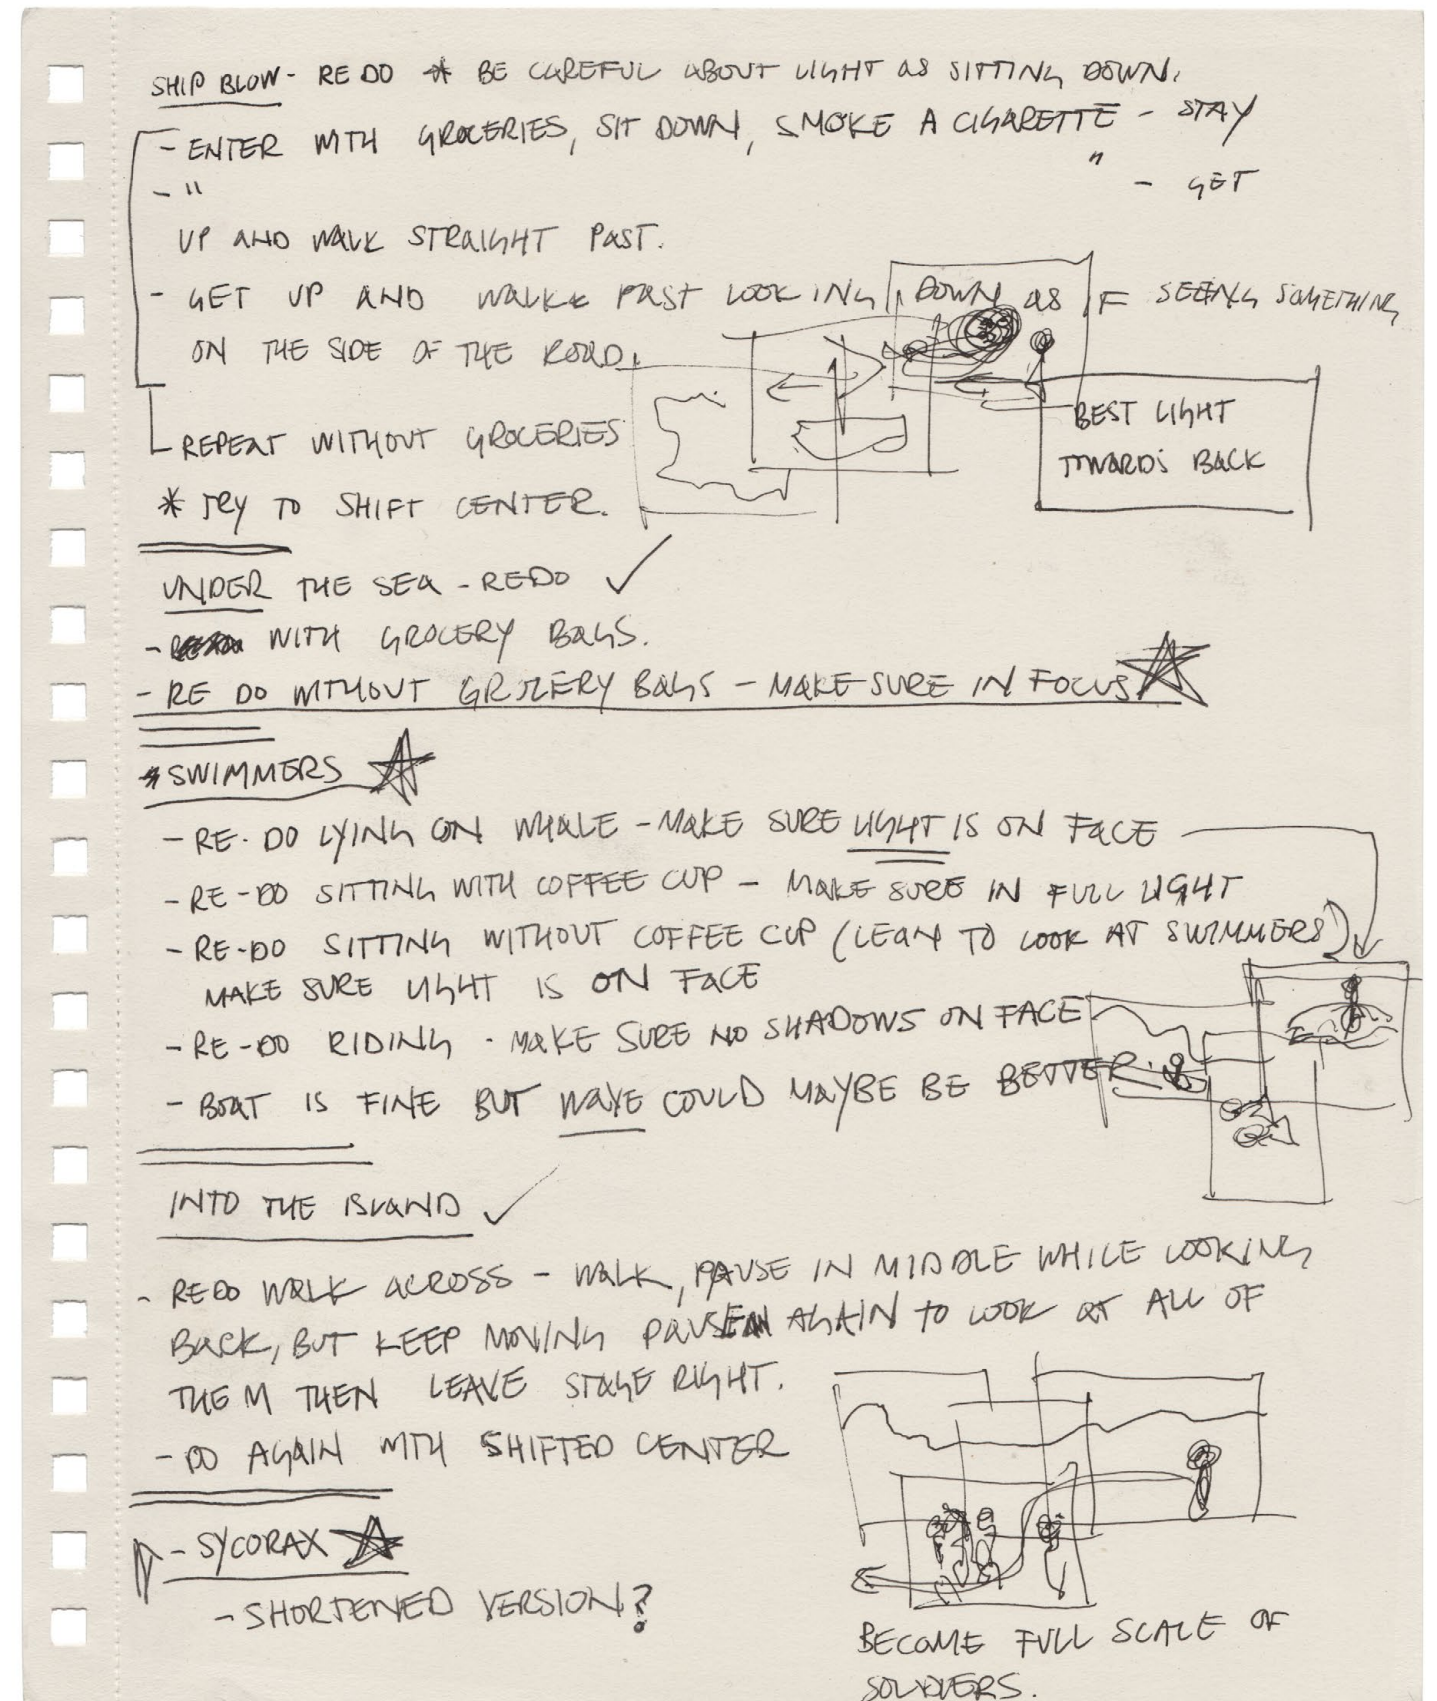 SHIP BLOW - RE DO * BE CAREFUL ABOUT LIGHT AS SITTING DOWN.
- ENTER WITH GROCERIES, SIT DOWN, SMOKE A CIGARETTE - STAY
- " " - GET
UP AND WALK STRAIGHT PAST.
- GET UP AND WALK PAST LOOKING DOWN AS IF SEEING SOMETHING
ON THE SIDE OF THE ROAD.
BEST LIGHT
TOWARDS BACK
REPEAT WITHOUT GROCERIES
* TRY TO SHIFT CENTER.
UNDER THE SEA - REDO ✓
- WITH GROCERY BAGS.
- RE DO WITHOUT GROCERY BAGS - MAKE SURE IN FOCUS ☆
* SWIMMERS ☆
- RE-DO LYING ON WHALE - MAKE SURE LIGHT IS ON FACE
- RE-DO SITTING WITH COFFEE CUP - MAKE SURE IN FULL LIGHT
- RE-DO SITTING WITHOUT COFFEE CUP (LEAN TO LOOK AT SWIMMERS)
MAKE SURE LIGHT IS ON FACE
- RE-DO RIDING - MAKE SURE NO SHADOWS ON FACE
- BOAT IS FINE BUT WAVE COULD MAYBE BE BETTER.
INTO THE ISLAND ✓
- REDO WALK ACROSS - WALK, PAUSE IN MIDDLE WHILE LOOKING
BACK, BUT KEEP MOVING PAUSE AGAIN TO LOOK AT ALL OF
THEM THEN LEAVE STAGE RIGHT.
- DO AGAIN WITH SHIFTED CENTER
- SYCORAX ☆
- SHORTENED VERSION?
BECOME FULL SCALE OF
SOLDIERS.